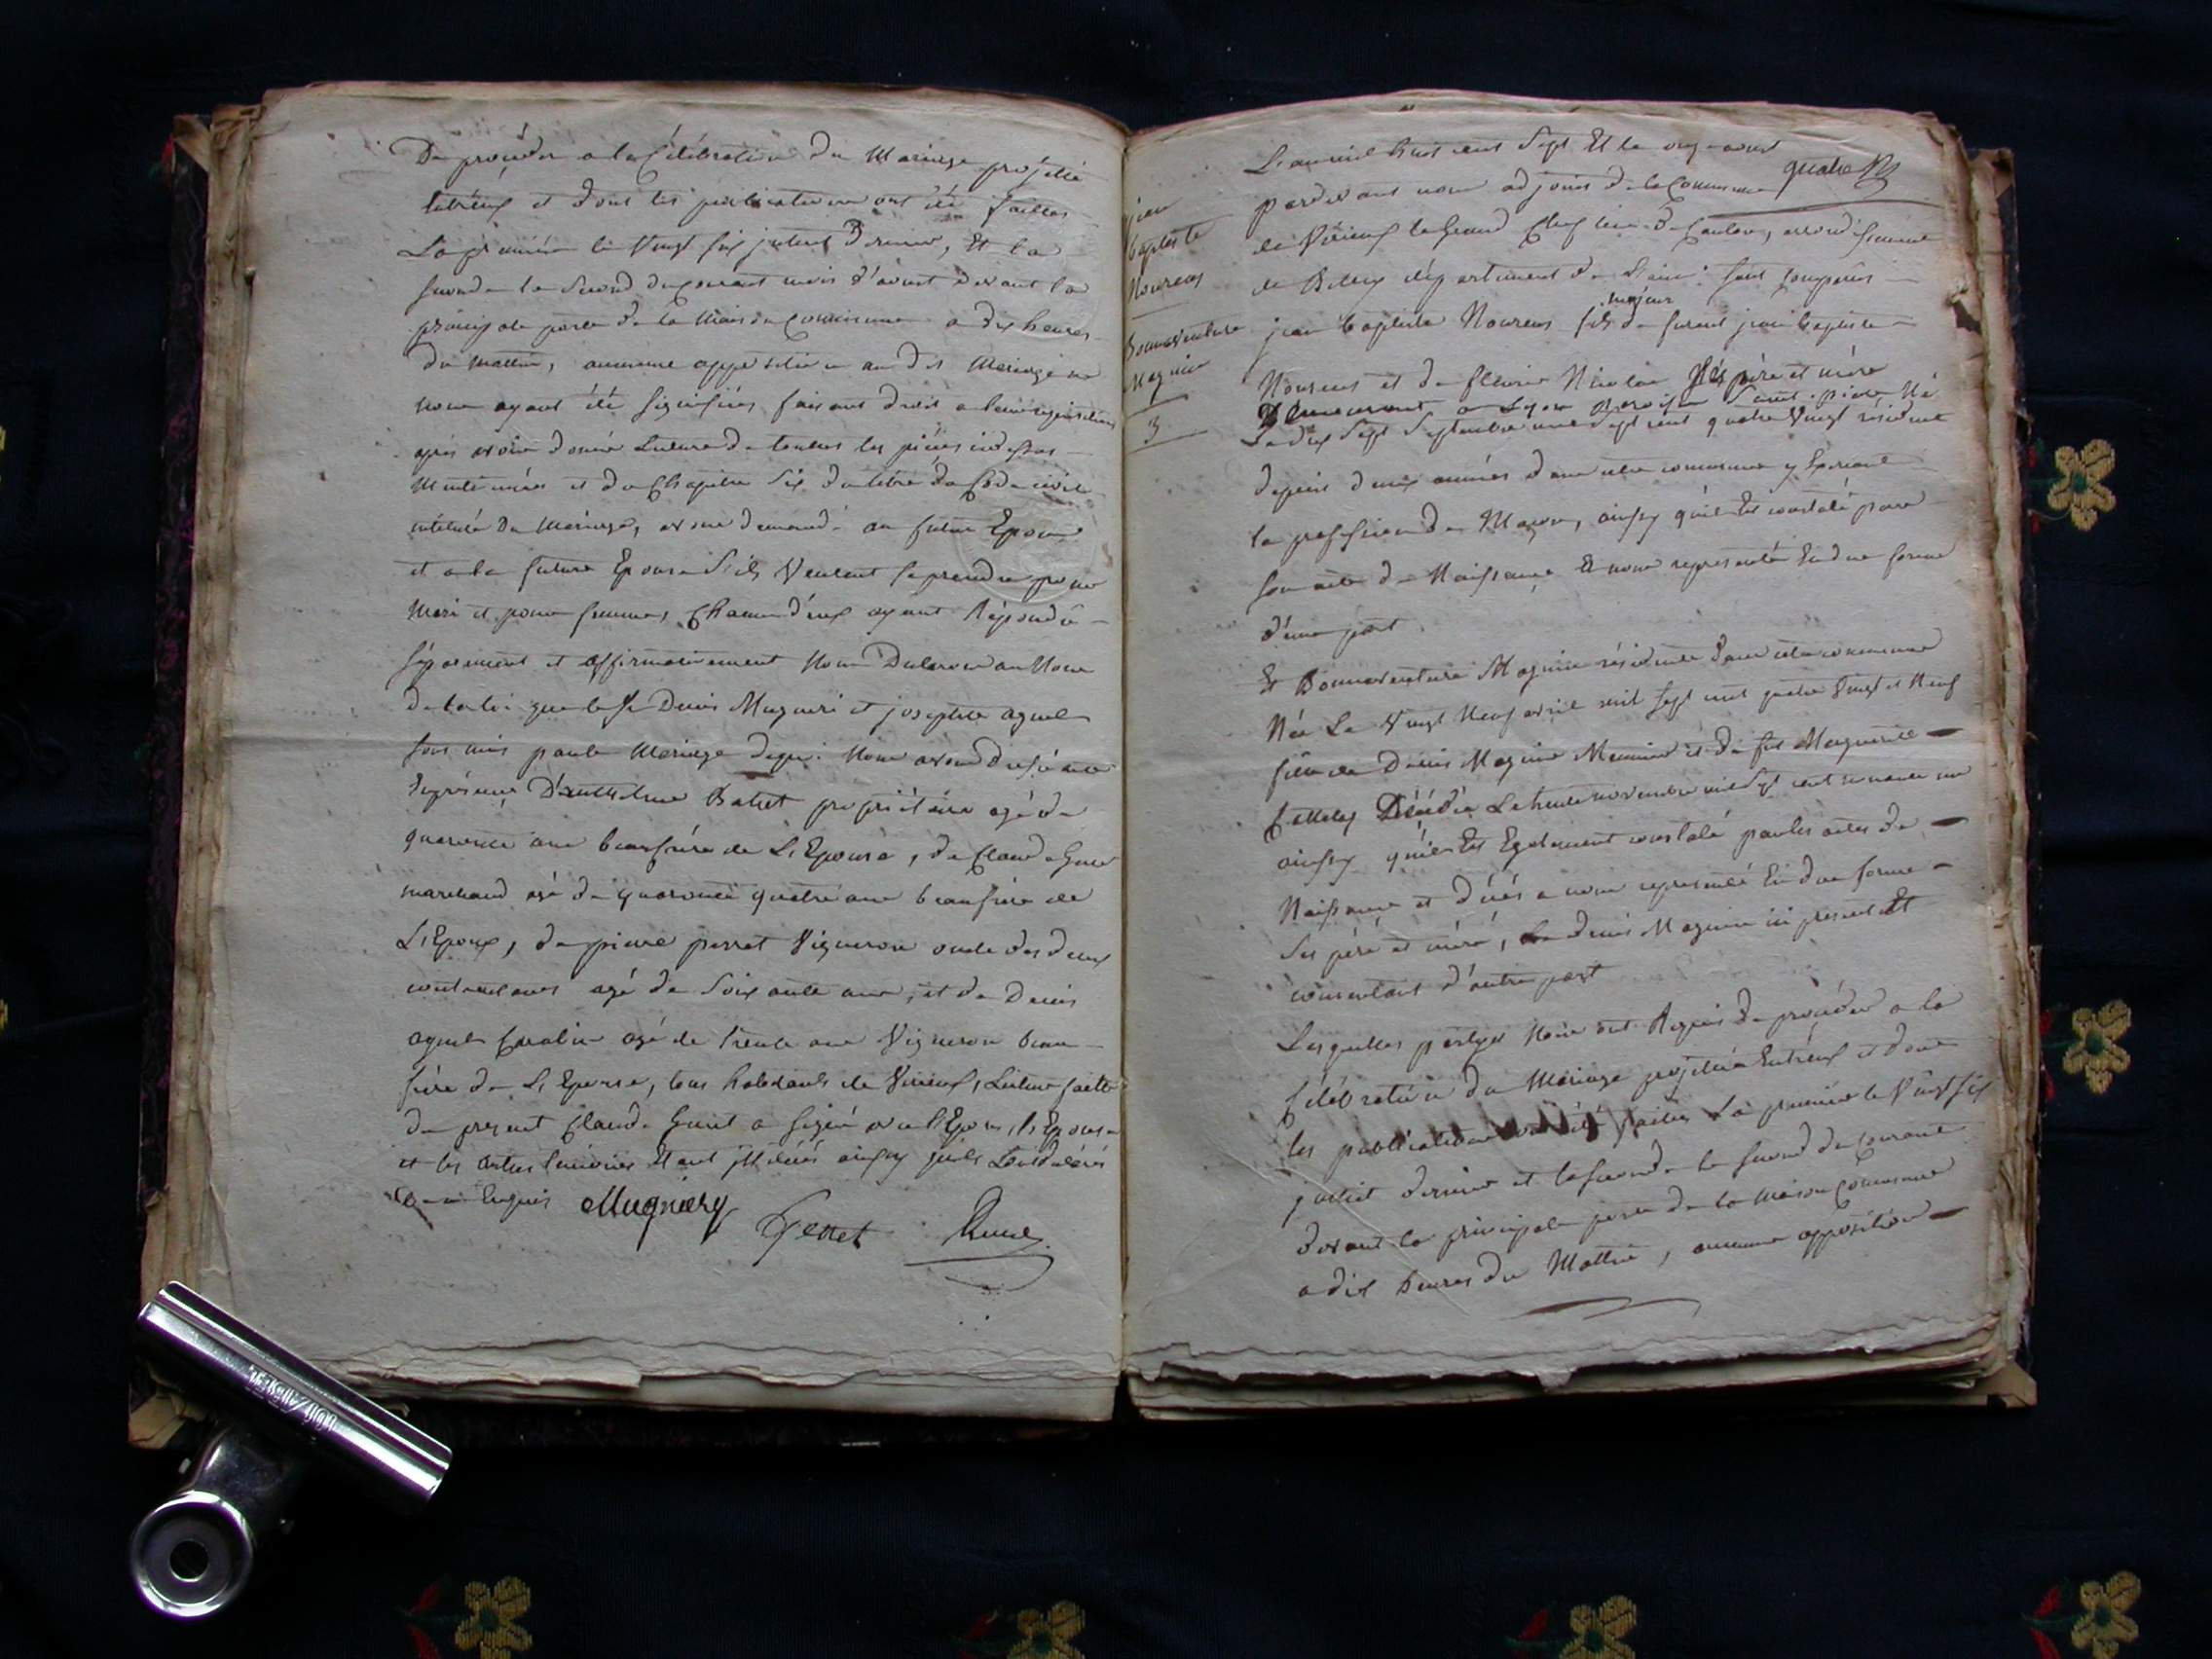 De proceder a la Célébration du Mariage projetté
entréux et dont les publications ont été faittes
La premiere le Vingt six juliet Dernier, Et la
seconde le second du courant mois d'aoust devant la
principale porte de la Maison Commune a dix heures
du mattin, aucunne opposition au dit Mariage ne
nous ayant été signifiée, faisant droit a leur requisition
aprés avoir donné Lecture de touttes les piéces cidessus
Mentionnées et du Chapitre Six du titre du Code civil
intitulé Du Mariage, avons demandé au futur Epoux
et a la future Epouse S'ils Veulent se prendre pour
Mari et pour femme, Chacun d'eux ayant Répondu
séparement et affirmativement Nous Declarons au Nom
De la loi que le Sr Denis Mugnieri et josephte aguel
sont unis par le Mariage dequoi Nous avons dressé acte
En présence D'anthelme Batlet propriétaire agé de
quarante ans beaufrére de L'Epouse, de Claude Guy
marchand agé de quarante quatre ans beaufrére de
L'Epoux, de pierre perret Vigneron oncle des deux
contractants agé de Soixante ans, et de Denis
aguel agé de trente ans Vigneron beau
frére de L'Epouse, tous habitants de Virieux, Lecture faitte
du present Claude a signé avec l'Epoux, l'Epouse
et les autres temoins Etant illiterés ainsy qu'ils L'ont déclaré
de ce Enquis Mugniery
perret
quatre
L'an mil huit cent Sept Et le onze aoust
pardevant nous adjoint de la Commune
de Virieux le Grand Chef lieu de Canton, arrondissement
de Belley département de L'ain: sont comparus
jean baptiste Noureas fils majeur de furent jean baptiste
Noureas et de fleurie Nicolas Ses pére et mére
Demeurant a Lyon paroisse Saint pierre Né
Le dix Sept Septembre mil Sept cent quatre Vingt résident
depuis deux années dans cette commune y Exercant
la profession de Maçon, ainsy qu'il Est constaté par
son acte de Naissance a nous representé En due forme
d'une part
Et Bonnaventure Magnin résidente dans cette commune
Née Le Vingt Neuf avril mil sept cent quatre Vingt et Neuf
fille de Denis Magnin Meunier et de fut Marguerite
Décédée Le trente novembre mil Sept cent
ainsy qu'il Est Egalement constaté par les actes de
Naissance et décés a nous representé En due forme
Ses pére et mére, Le denis Magnin ici present Et
consentant d'autre part
Lesquelles partyes Nous ont Requis de proceder a la
Célébration du Mariage projetté Entréux et dont
les publications ont été faittes La premiere le Vingt six
juilliet dernier et la seconde le second du Courant
devant la principale porte de la Maison Commune
a dix heures du Mattin, aucunne opposition
jean
baptiste
Noureas
Bonnaventure
Magnin
3